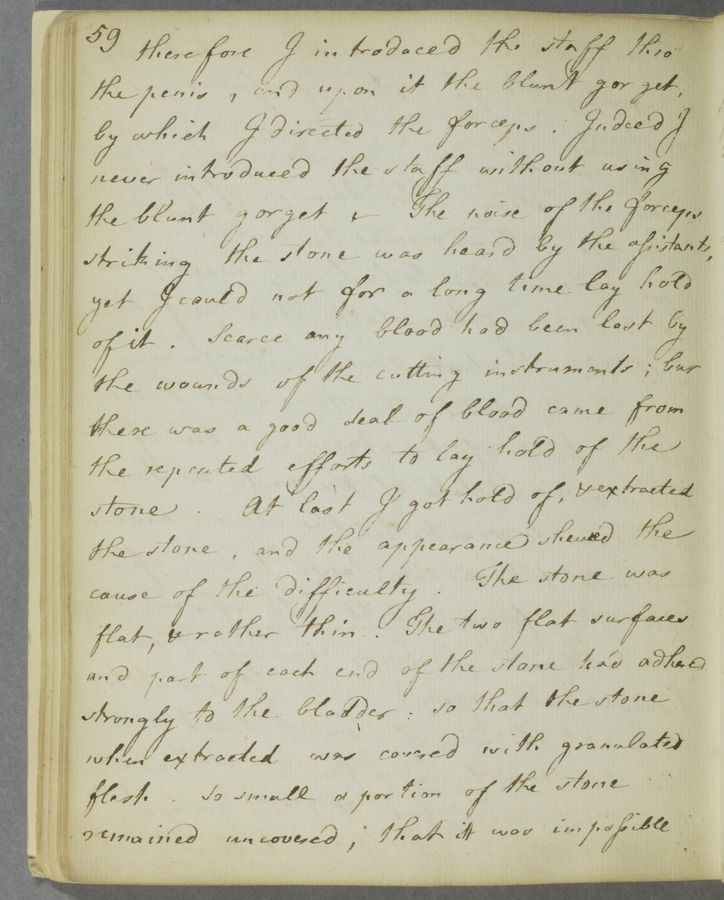 59
therefore I introduced the staff thro
the penis, and upon it the blunt gorget,
by which I directed the forceps. Indeed I
never introduced the staff without using
the blunt gorget + The noise of the forceps
striking the stone was heard by the assistants,
yet I could not for a long time lay hold
of it. Scarce any blood had been lost by
the wounds of the cutting instruments; but
there was a good deal of blood came from
the repeated efforts to lay hold of the
stone. At last I got hold of, & extracted
the stone, and the appearance shewed the
cause of the difficulty. The stone was
flat, & rather thin. The two flat surfaces
and part of each end of the stone had adhered
strongly to the bladder: so that the stone
when extracted was covered with granulated
flesh. So small a portion of the stone
remained uncovered, that it was impossible